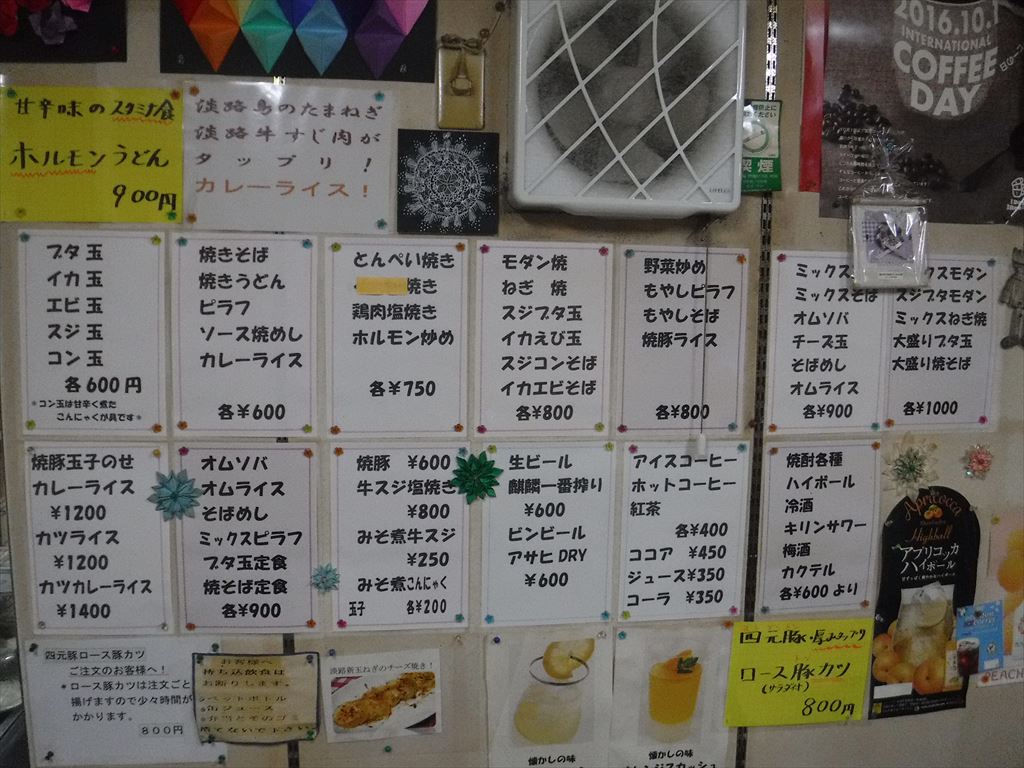 2016.10.1
INTERNATIONAL
COFFEE
DAY
甘辛味のスタミナ食
ホルモンうどん
900円
淡路島のたまねぎ
淡路牛すじ肉が
タップリ!
カレーライス!
喫煙
ブタ玉
イカ玉
エビ玉
スジ玉
コン玉
各600円
*コン玉は甘辛く煮た
こんにゃくが具です*
焼きそば
焼きうどん
ピラフ
ソース焼めし
カレーライス
各¥600
とんぺい焼き
焼き
鶏肉塩焼き
ホルモン炒め
各¥750
モダン焼
ねぎ 焼
スジブタ玉
イカえび玉
スジコンそば
イカエビそば
各¥800
野菜炒め
もやしピラフ
もやしそば
焼豚ライス
各¥800
ミックス
ミックスそば
オムソバ
チーズ玉
そばめし
オムライス
各¥900
クスモダン
スジブタモダン
ミックスねぎ焼
大盛りブタ玉
大盛り焼そば
各¥1000
焼豚玉子のせ
カレーライス
¥1200
カツライス
¥1200
カツカレーライス
¥1400
オムソバ
オムライス
そばめし
ミックスピラフ
ブタ玉定食
焼そば定食
各¥900
焼豚 ¥600
牛スジ塩焼き
¥800
みそ煮牛スジ
¥250
みそ煮こんにゃく
玉子 各¥200
生ビール
麒麟一番搾り
¥600
ビンビール
アサヒDRY
¥600
アイスコーヒー
ホットコーヒー
紅茶
各¥400
ココア ¥450
ジュース¥350
コーラ ¥350
焼酎各種
ハイボール
冷酒
キリンサワー
梅酒
カクテル
各¥600より
Apricocca
Highball
アプリコッカ
ハイボール
PEACH
四元豚ロース豚カツ
ご注文のお客様へ!
*ロース豚カツは注文ごと
揚げますので少々時間が
かかります。
800円
お客様へ
持ち込飲食は
お断りします。
ペットボトル
缶ジュース
弁当とそのゴミ
捨てないで下さい
淡路新玉ねぎのチーズ焼き!
懐かしの味
懐かしの味
四元豚・厚みタップリ
ロース豚カツ
(サラダ付)
800円